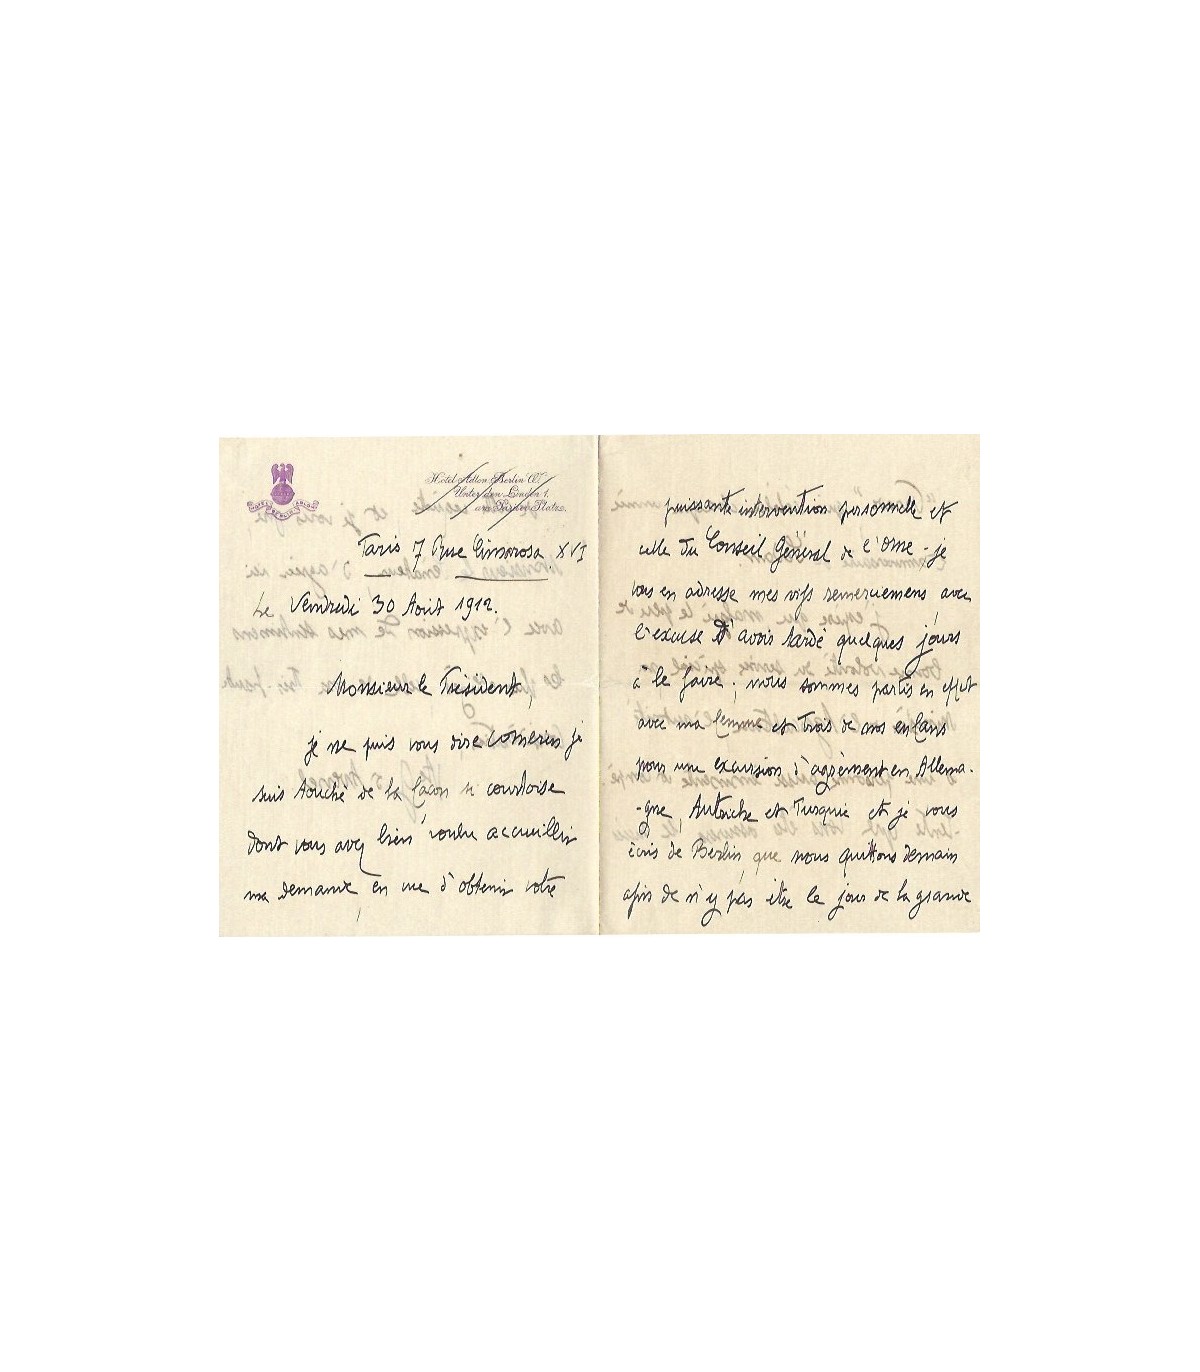 Hotel Adlon Berlin W.
Unter den Linden 1.
am Pariser Platz.
Paris 7 Rue Cimarosa XVI
Le Vendredi 30 Août 1912.
Monsieur le Président,
je ne puis vous dire combien je
suis touché de la façon si courtoise
dont vous avez bien voulu accueillir
ma demande en vue d'obtenir votre
puissante intervention personnelle et
celle du Conseil Général de l'Orne - je
vous en adresse mes vifs remerciemens avec
l'excuse d'avoir tardé quelques jours
à le faire; nous sommes partis en effet
avec ma femme et trois de nos enfans
pour une excursion d'agrément en Allema-
-gne, Autriche et Turquie et je vous
écris de Berlin que nous quittons demain
afin de n'y pas être le jour de la grande